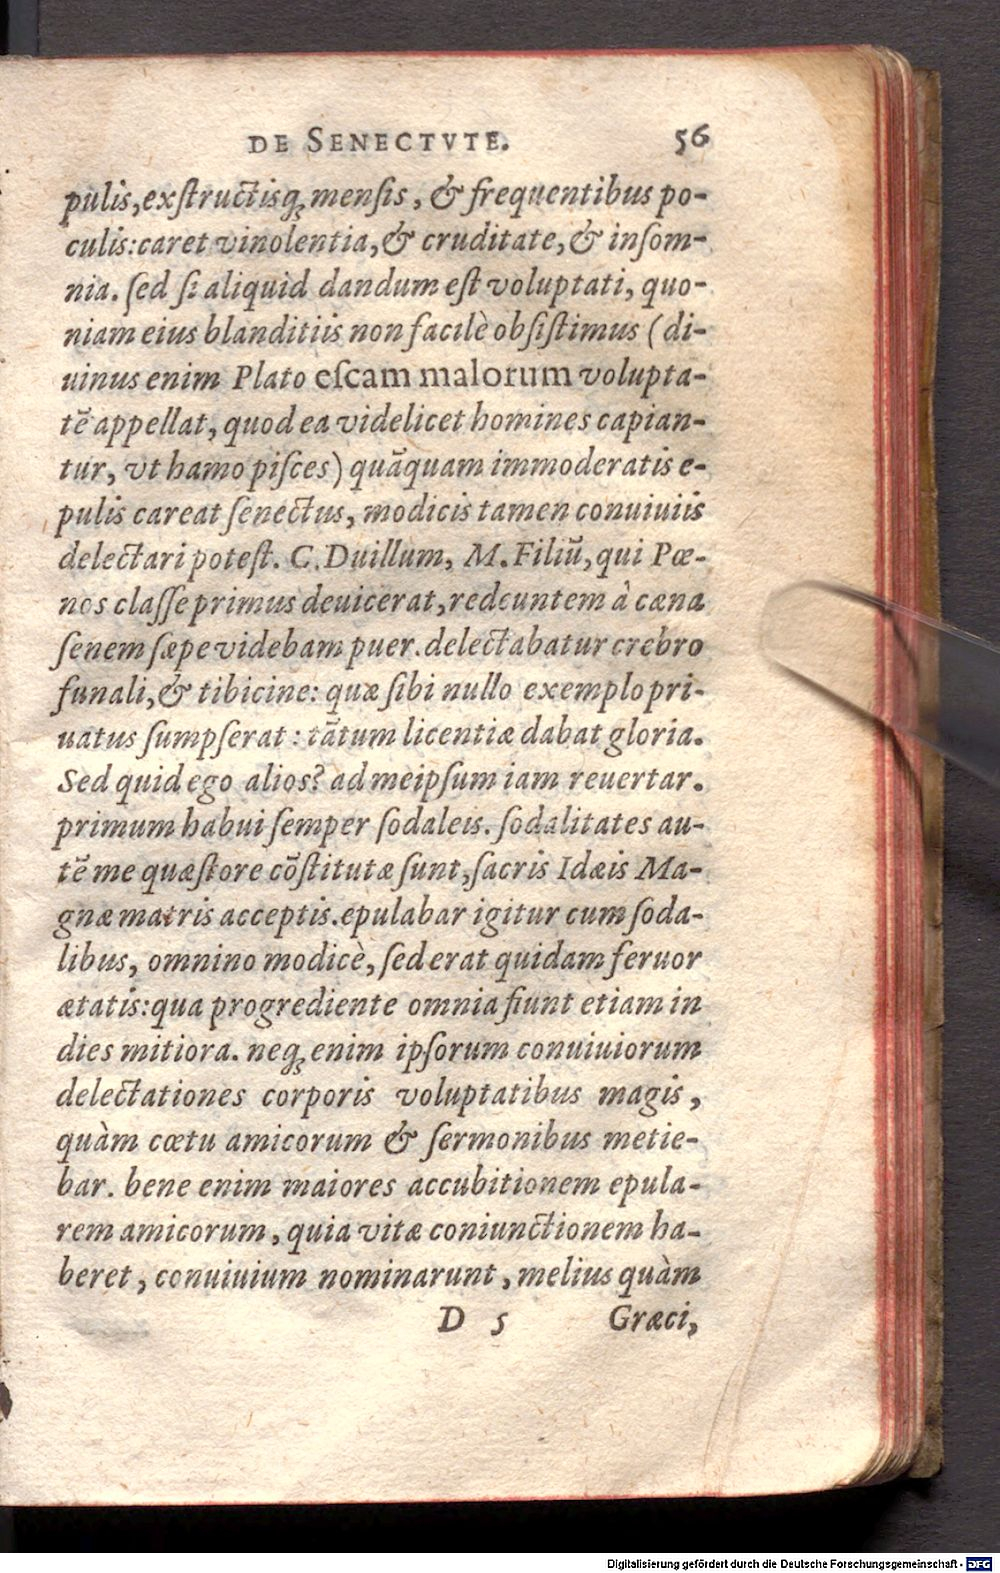 DE SENECTVTE. 56
pulis, exſtructisq; menſis, & frequentibus po-
culis: caret vinolentia, & cruditate, & inſom-
nia. ſed ſi aliquid dandum eſt voluptati, quo-
niam eius blanditiis non facilè obſiſtimus (di-
uinus enim Plato eſcam malorum volupta-
tē appellat, quod ea videlicet homines capian-
tur, vt hamo piſces) quāquam immoderatis e-
pulis careat ſenectus, modicis tamen conuiuiis
delectari poteſt. C. Duillum, M. Filiū, qui Pœ-
nos claſſe primus deuicerat, redeuntem à cæna
ſenem ſæpe videbam puer. delectabatur crebro
funali, & tibicine: quæ ſibi nullo exemplo pri-
uatus ſumpſerat: tātum licentiæ dabat gloria.
Sed quid ego alios? ad meipſum iam reuertar.
primum habui ſemper ſodaleis. ſodalitates au-
tē me quæſtore cōſtitutæ ſunt, ſacris Idæis Ma-
gnæ matris acceptis. epulabar igitur cum ſoda-
libus, omnino modicè, ſed erat quidam feruor
ætatis: qua progrediente omnia fiunt etiam in
dies mitiora. neq; enim ipſorum conuiuiorum
delectationes corporis voluptatibus magis,
quàm cœtu amicorum & ſermonibus metie-
bar. bene enim maiores accubitionem epula-
rem amicorum, quia vitæ coniunctionem ha-
beret, conuiuium nominarunt, melius quàm
D 5 Græci,
Digitalisierung gefördert durch die Deutsche Forschungsgemeinschaft - DFG